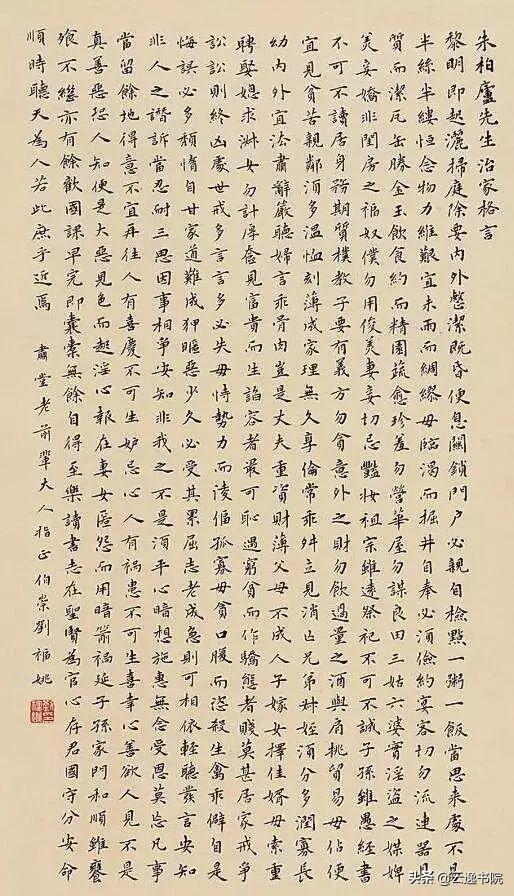 朱柏廬先生治家格言
黎明即起灑掃庭除要內外整潔既昏便息關鎖門戶必親自檢點一粥一飯當思來處不易
半絲半縷恒念物力維艱宜未雨而綢繆毋臨渴而掘井自奉必須儉約宴客切勿流連器具
質而潔瓦缶勝金玉飲食約而精園蔬愈珍羞勿營華屋勿謀良田三姑六婆實淫盜之媒婢
美妾嬌非閨房之福奴僕勿用俊美妻妾切忌豔妝祖宗雖遠祭祀不可不誠子孫雖愚經書
不可不讀居身務期質樸教子要有義方勿貪意外之財勿飲過量之酒與肩挑貿易毋佔便
宜見貧苦親鄰須多溫恤刻薄成家理無久享倫常乖舛立見消亡兄弟叔姪須分多潤寡長
幼內外宜法肅辭嚴聽婦言乖骨肉豈是丈夫重資財薄父母不成人子嫁女擇佳婿毋索重
聘娶媳求淑女勿計厚奩見富貴而生諂容者最可恥遇貧窮而作驕態者賤莫甚居家戒爭
訟訟則終凶處世戒多言言多必失毋恃勢力而凌偪孤寡毋貪口腹而恣殺生禽乖僻自是
悔誤必多頹惰自甘家道難成狎暱惡少久必受其累屈志老成急則可相依輕聽發言安知
非人之譖訴當忍耐三思因事相爭安知非我之不是須平心暗想施惠無念受恩莫忘凡事
當留餘地得意不宜再往人有喜慶不可生妒忌心人有禍患不可生喜幸心善欲人見不是
真善惡恐人知便是大惡見色而起淫心報在妻女匿怨而用暗箭禍延子孫家門和順雖饔
飧不繼亦有餘歡國課早完即囊橐無餘自得至樂讀書志在聖賢為官心存君國守分安命
順時聽天為人若此庶乎近焉 肅堂老前輩夫人指正伯崇劉福姚
头条 @云逸书院